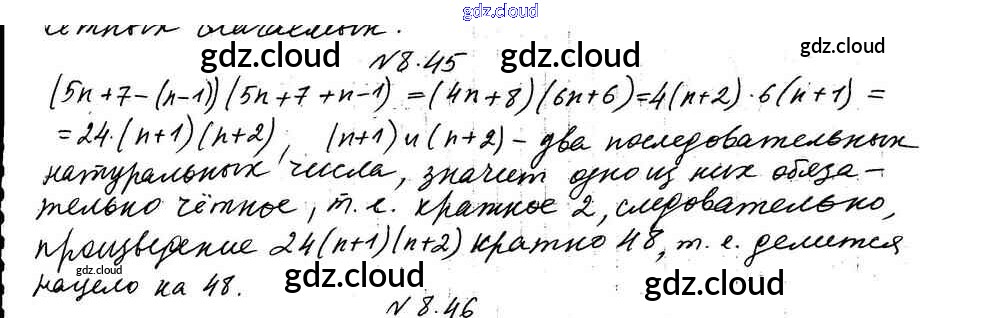 gdz.cloud
чётных слагаемых.
gdz.cloud gdz.cloud gdz.cloud
N 8.45
(5n+7-(n-1))(5n+7+n-1) = (4n+8)(6n+6) = 4(n+2)·6(n+1) =
= 24·(n+1)(n+2), (n+1) и (n+2) - два последовательных
натуральных числа, значит одно из них обяза-
тельно чётное, т. е. кратное 2, следовательно,
произведение 24(n+1)(n+2) кратно 48, т. е. делится
gdz.cloud
нацело на 48.
gdz.cloud gdz.cloud
N 8.46